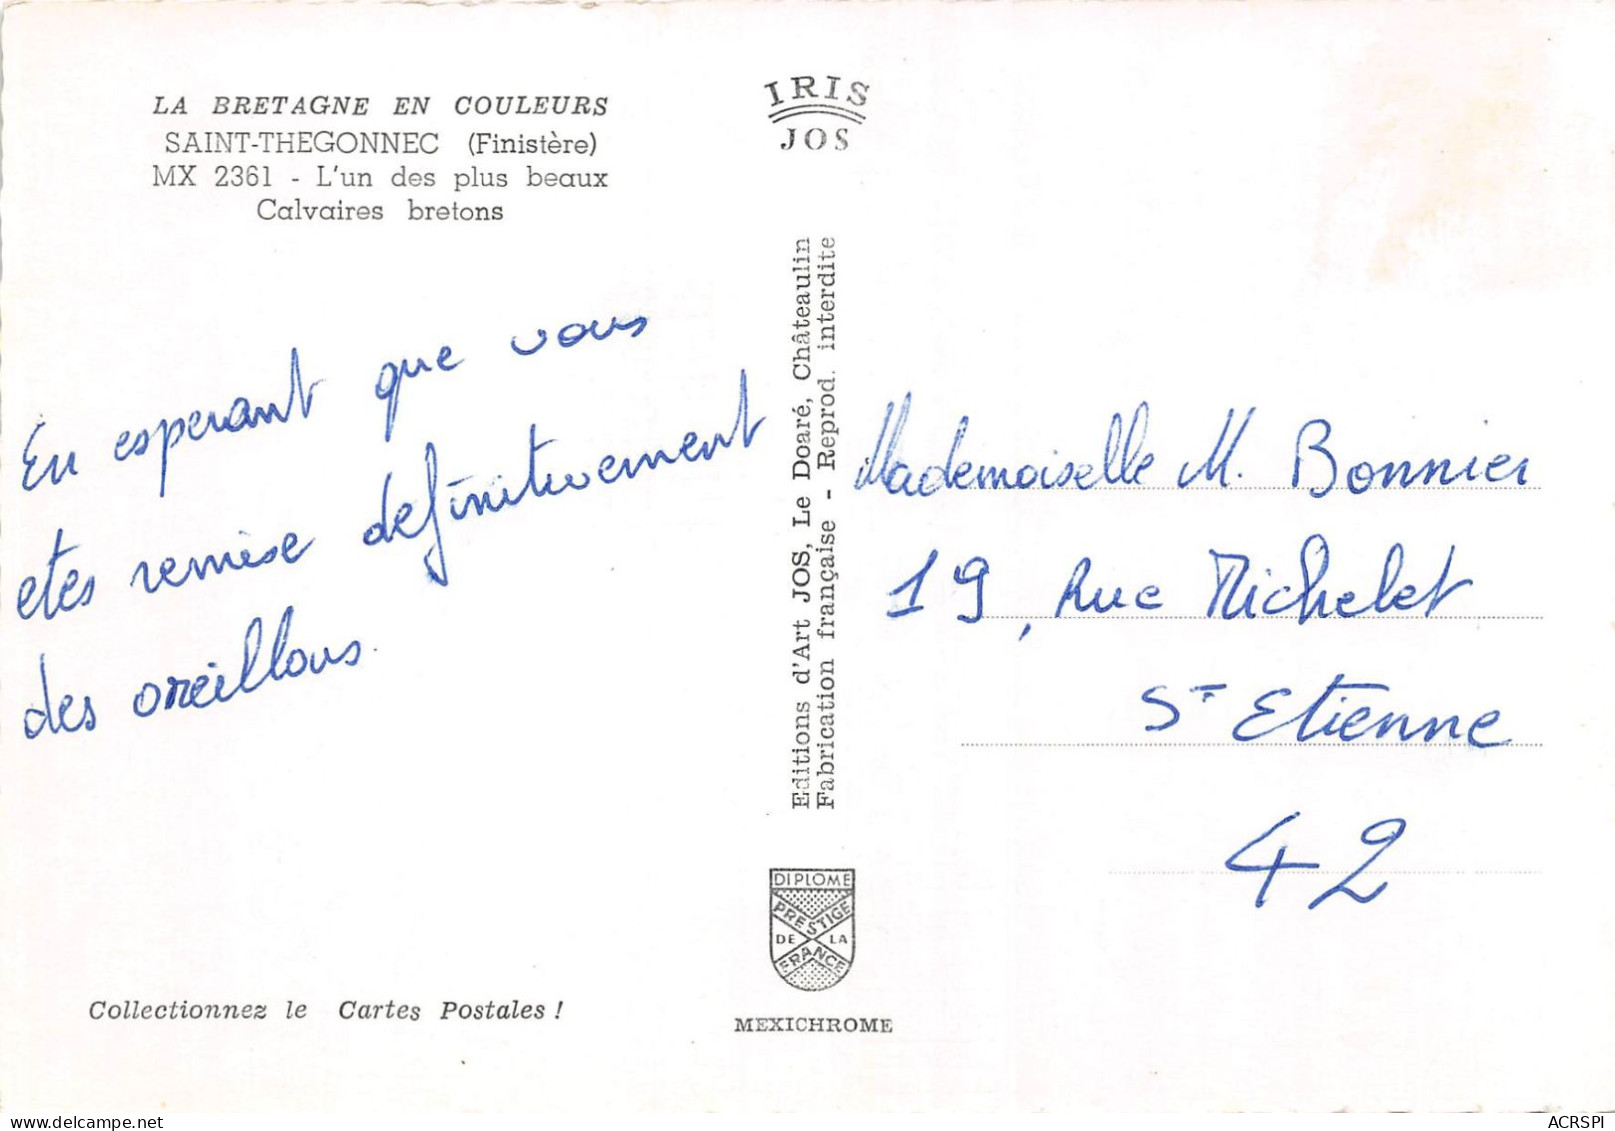 LA BRETAGNE EN COULEURS
SAINT-THEGONNEC (Finistère)
MX 2361 - L'un des plus beaux
Calvaires bretons
IRIS
JOS
En esperant que vous
etes remise definitivement
des oreillons.
Editions d'Art JOS, Le Doaré, Châteaulin
Fabrication française - Reprod. interdite
Mademoiselle M. Bonnier
19, Rue Michelet
St Etienne
42
DIPLOME
PRESTIGE
DE LA
FRANCE
MEXICHROME
Collectionnez le Cartes Postales !
delcampe.net
ACRSPI